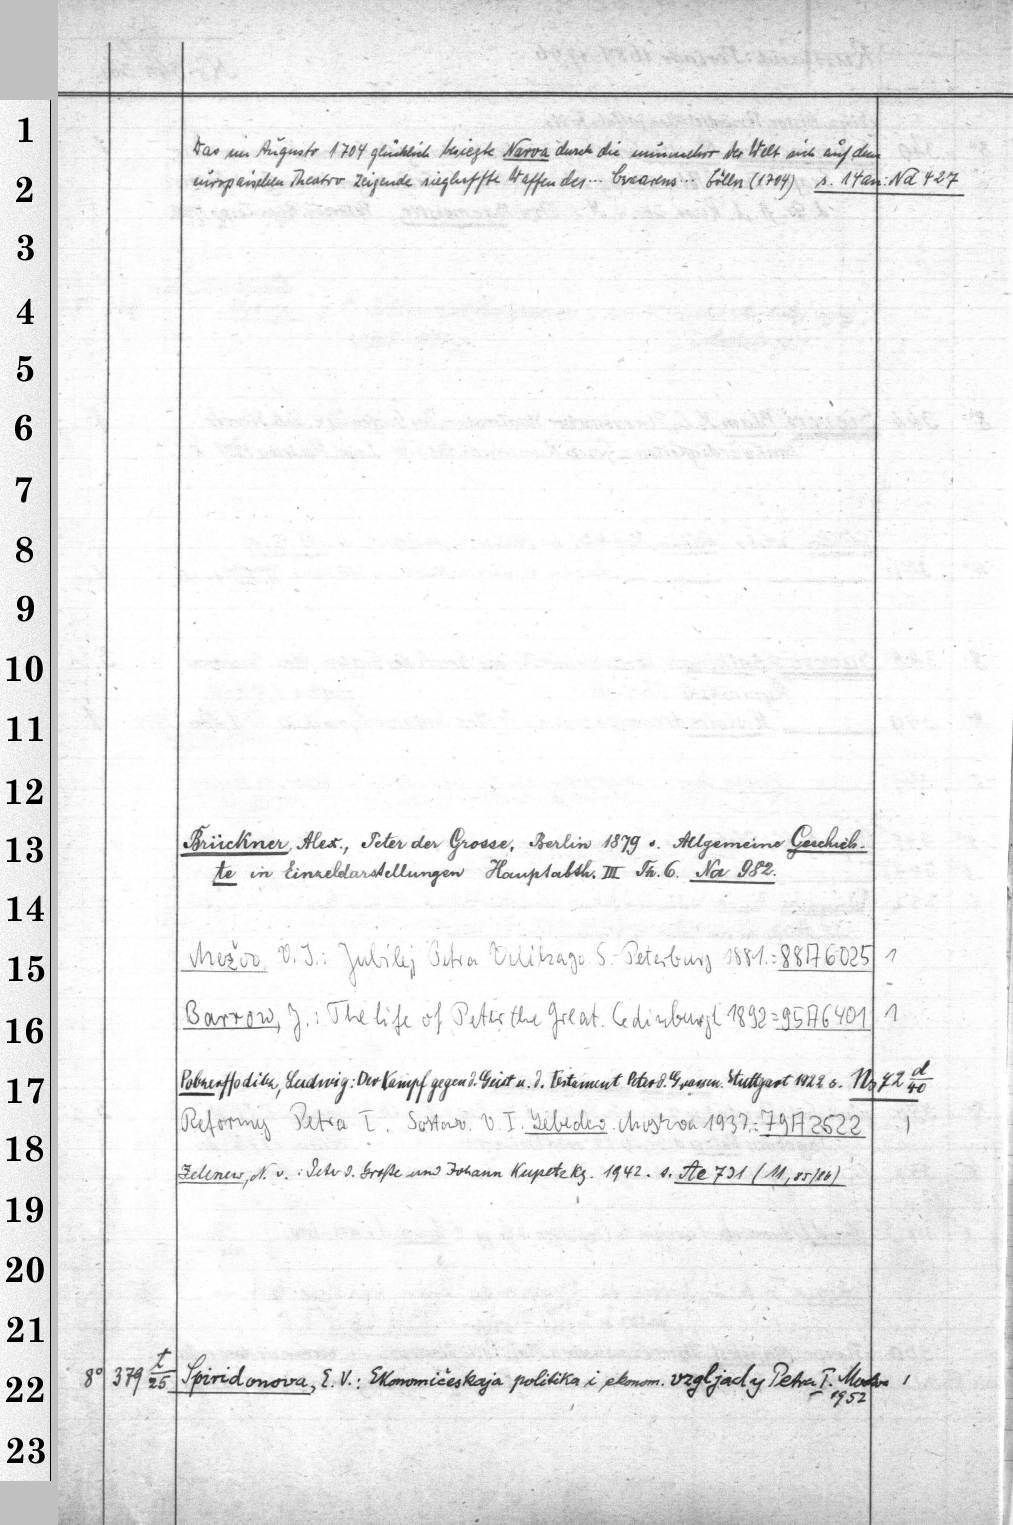 1
Das im Augusto 1704 glücklich besiegte Narva durch die nunmehro der Welt sich auf dem
2
europaeischen Theatro zeigende sieghaffte Waffen des... Czaarens... Cölln (1704) s. 14 an: Na 427
3
4
5
6
7
8
9
10
11
12
13
Brückner, Alex., Peter der Grosse, Berlin 1879 s. Allgemeine Geschich-
te in Einzeldarstellungen Hauptabth. III Th. 6. Na 982.
14
15
Mežov, V. I.: Jubilej Petra Velikago S.-Peterburg 1881.=88A6025 1
16
Barrow, J.: The life of Peter the Great. Edinburgh 1892=95A6401 1
17
Ludwig: Der Kampf gegen d. Geist u. d. Testament Peter d. Grossen. Stuttgart 1922 s. Na 72 d/40
Reformy Petra I. Sostav. V. I. Lebedev. Moskva 1937.=79A2622 1
18
Zelenew, N. v.: Peter d. Große und Johann Kupetzky. 1942. s. Ae 731 (11,85/86)
19
20
21
22
8° 379 t/25 Spiridonova, E. V.: Ekonomičeskaja politika i ekonom. vzgljady Petra I. Moskva 1
1952
23